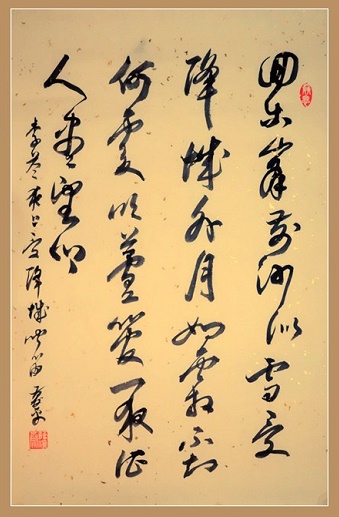 回樂峯前沙似雪受
降城外月如霜不知
何處吹蘆管一夜征
人盡望鄉
李益夜上受降城聞笛